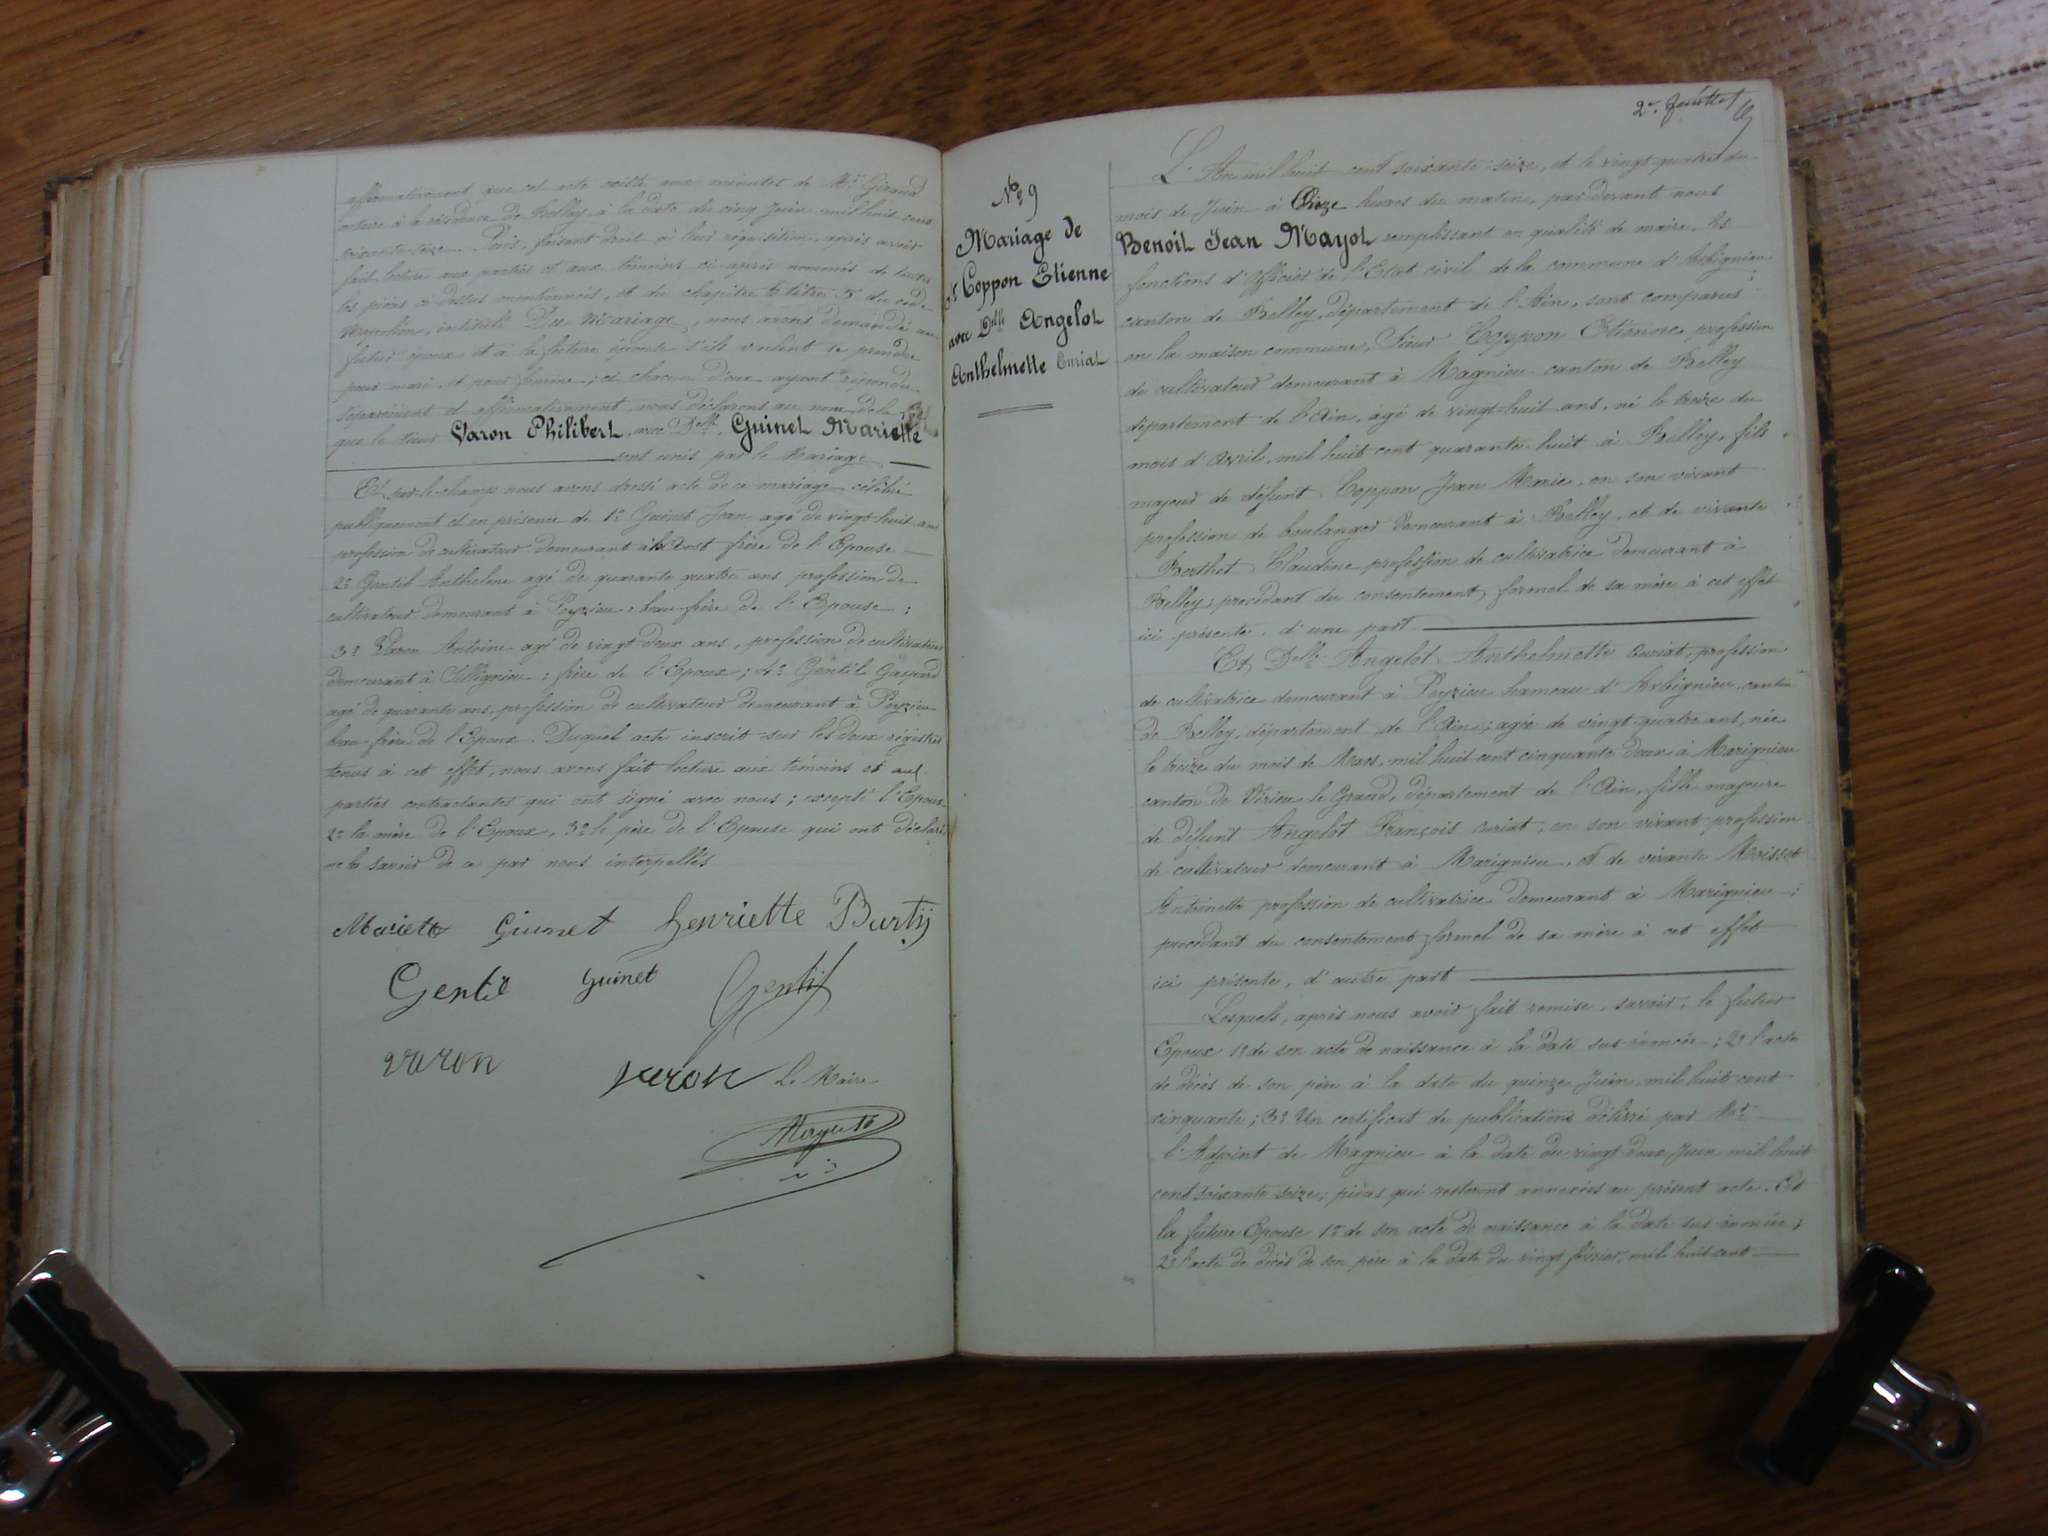 affirmativement que cet acte existe aux minutes de Mr. Giraud
notaire à la résidence de Belley, à la date du cinq Juin mil huit cent
soixante-seize. Puis, faisant droit à leur réquisition, après avoir
fait lecture aux parties et aux témoins ci-après nommés de toutes
les pièces ci-dessus mentionnées, et du chapitre 6 titre 5 du code
Napoléon, intitulé Du Mariage, nous avons demandé au
futur époux et à la future épouse s'ils veulent se prendre
pour mari et pour femme; et chacun d'eux ayant répondu
séparément et affirmativement, nous déclarons au nom de la loi
que le sieur Varon Philibert, avec Delle. Guinet Mariette
sont unis par le Mariage
Et sur-le-champ nous avons dressé acte de ce mariage célébré
publiquement et en présence de 1º Guinet Jean agé de vingt-huit ans
profession de cultivateur demeurant à frère de l'Epouse
2º Gentil Anthelme agé de quarante quatre ans profession de
cultivateur demeurant à Peyzieu, beau-frère de l'Epouse;
3º Varon Antoine agé de vingt-deux ans, profession de cultivateur
demeurant à Sillignieu; frère de l'Epoux; 4º Gentil Gaspard
agé de quarante ans, profession de cultivateur demeurant à Peyzieu
beau-frère de l'Epoux. Duquel acte inscrit sur les deux régistres
tenus à cet effet, nous avons fait lecture aux témoins et aux
parties contractantes qui ont signé avec nous; excepté l'Epoux
2º la mère de l'Epoux, 3º le père de l'Epouse qui ont déclaré
ne le savoir de ce par nous interpellés
Mariette Guinet Henriette Burty
Gentil Guinet Gentil
varon varon Le Maire
No 9
Mariage de
Sr Coppon Etienne
avec Delle Angelot
Anthelmette Curiat
2e.
L'An mil huit cent soixante-seize, et le vingt-quatre du
mois de Juin à Onze heures du matin, par devant nous
Benoit Jean Mayot remplissant en qualité de maire, les
fonctions d'Officier de l'Etat civil de la commune d'Arbignieu
canton de Belley, département de l'Ain, sont comparus
en la maison commune, Sieur Coppon Etienne, profession
de cultivateur demeurant à Magnieu canton de Belley
département de l'Ain, âgé de vingt-huit ans, né le treize du
mois d'Avril mil huit cent quarante huit à Belley, fils
majeur de défunt Coppon Jean Marie, en son vivant
profession de boulanger demeurant à Belley, et de vivante
Berthet Claudine profession de cultivatrice demeurant à
Belley; procédant du consentement formel de sa mère à cet effet
ici présente, d'une part
Et Delle. Angelot Anthelmette Curiat, profession
de cultivatrice demeurant à Peyzieu hameau d'Arbignieu, canton
de Belley, département de l'Ain; agée de vingt-quatre ans, née
le treize du mois de Mars, mil huit cent cinquante deux à Marignieu
canton de Virieu le Grand, département de l'Ain, fille majeure
de défunt Angelot François curiat, en son vivant profession
de cultivateur demeurant à Marignieu, et de vivante Moisset
Antoinette profession de cultivatrice demeurant à Marignieu;
procédant du consentement formel de sa mère à cet effet
ici présente, d'autre part
Lesquels, après nous avoir fait remise, savoir, le futur
Epoux 1º de son acte de naissance à la date sus-énoncée; 2º l'acte
de décès de son père à la date du quinze Juin mil huit cent
cinquante; 3º Un certificat de publications délivré par Mr
l'Adjoint de Magnieu à la date du vingt-deux Juin mil huit
cent soixante seize; pièces qui resteront annexées au présent acte. Et
la future Epouse 1º de son acte de naissance à la date sus-énoncée;
2º l'acte de décès de son père à la date du vingt février, mil huit cent